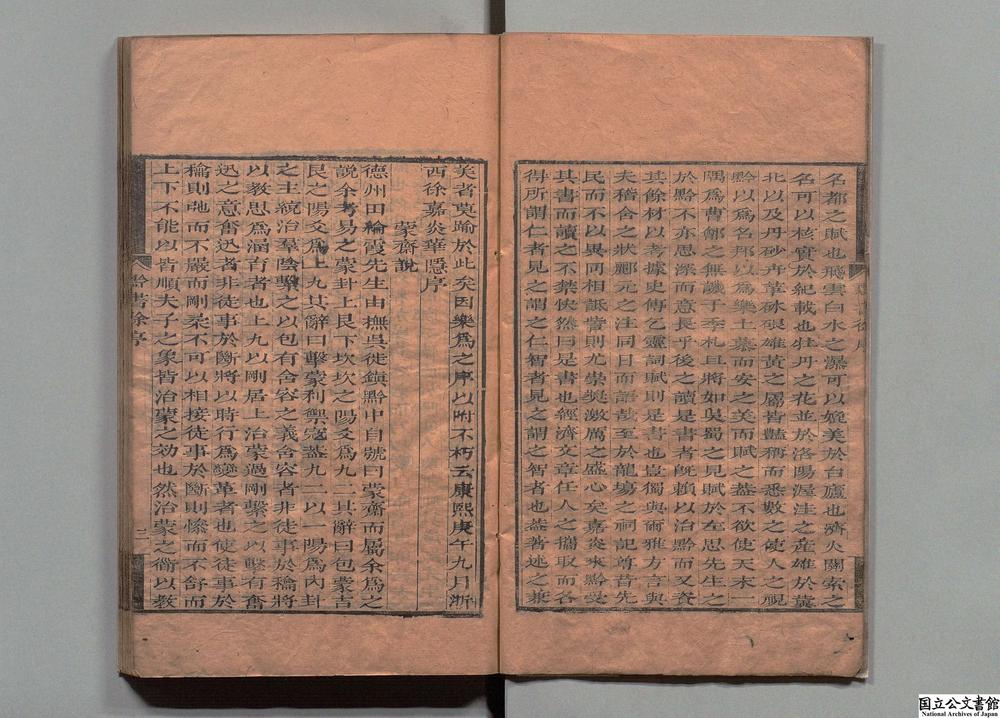 名都之賦也飛雲白水之瀑可以媲美於台廬也濟火關索之
名可以核實於紀載也牡丹之花並於洛陽渥洼之産雄於冀
北以及丹砂卉草砅硍雄黄之屬皆豔稱而悉數之使人之視
黔以爲名邦以爲樂土慕而安之美而賦之葢不欲使天末一
隅爲曹鄶之無譏于季札且將如吳蜀之見賦於左思先生之
於黔不亦思深而意長乎後之讀是書者旣賴以治黔而又資
其餘材以考據史傳乞靈詞賦則是書也豈獨與爾雅方言與
夫稽含之狀酈元之注同日而語哉至於龍塲之祠記尊昔先
民而不以異同相詆訾則尤崇奬激厲之盛心矣嘉炎來黔受
其書而讀之不禁怏然曰是書也經濟文章任人之攟取而各
得所謂仁者見之謂之仁智者見之謂之智者也葢著述之業
美者莫踰於此矣因樂爲之序以附不朽云康熙庚午九月浙
西徐嘉炎華隱序
蒙齋說
德州田綸霞先生由撫吳徙鎭黔中自號曰蒙齋而屬余爲之
說余考易之蒙卦上艮下坎坎之陽爻爲九二其辭曰包蒙吉
艮之陽爻爲上九其辭曰擊蒙利禦寇葢九二以一陽爲內卦
之主統治羣陰繫之以包有含容之義含容者非徒事於稐將
以教思爲涵育者也上九以剛居上治蒙過剛繫之以擊有奮
迅之意奮迅者非徒事於斷將以時行爲變革者也使徒事於
稐則虺而不嚴而剛柔不可以相接徒事於斷則慘而不舒而
上下不能以皆順夫子之象皆治蒙之効也然治蒙之術以教
黔書徐序
二
國立公文書館
National Archives of Japan